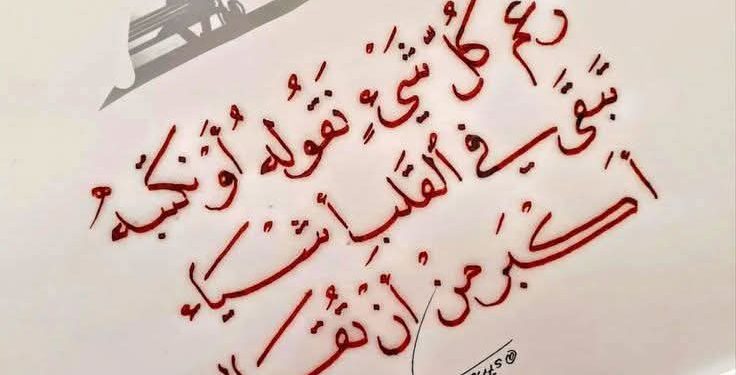 رغم كُل شَيْءٍ نَقُولُه أَوْ نَكتبهُ
تَبقَى في اُلقَلبِ أشْيَاء
أَكْبَر مِنْ أَنْ تُقَال